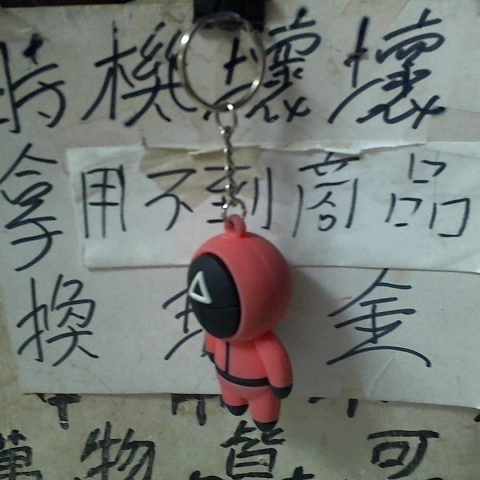 時機壞壞
拿用不到商品
換現金
萬物皆可